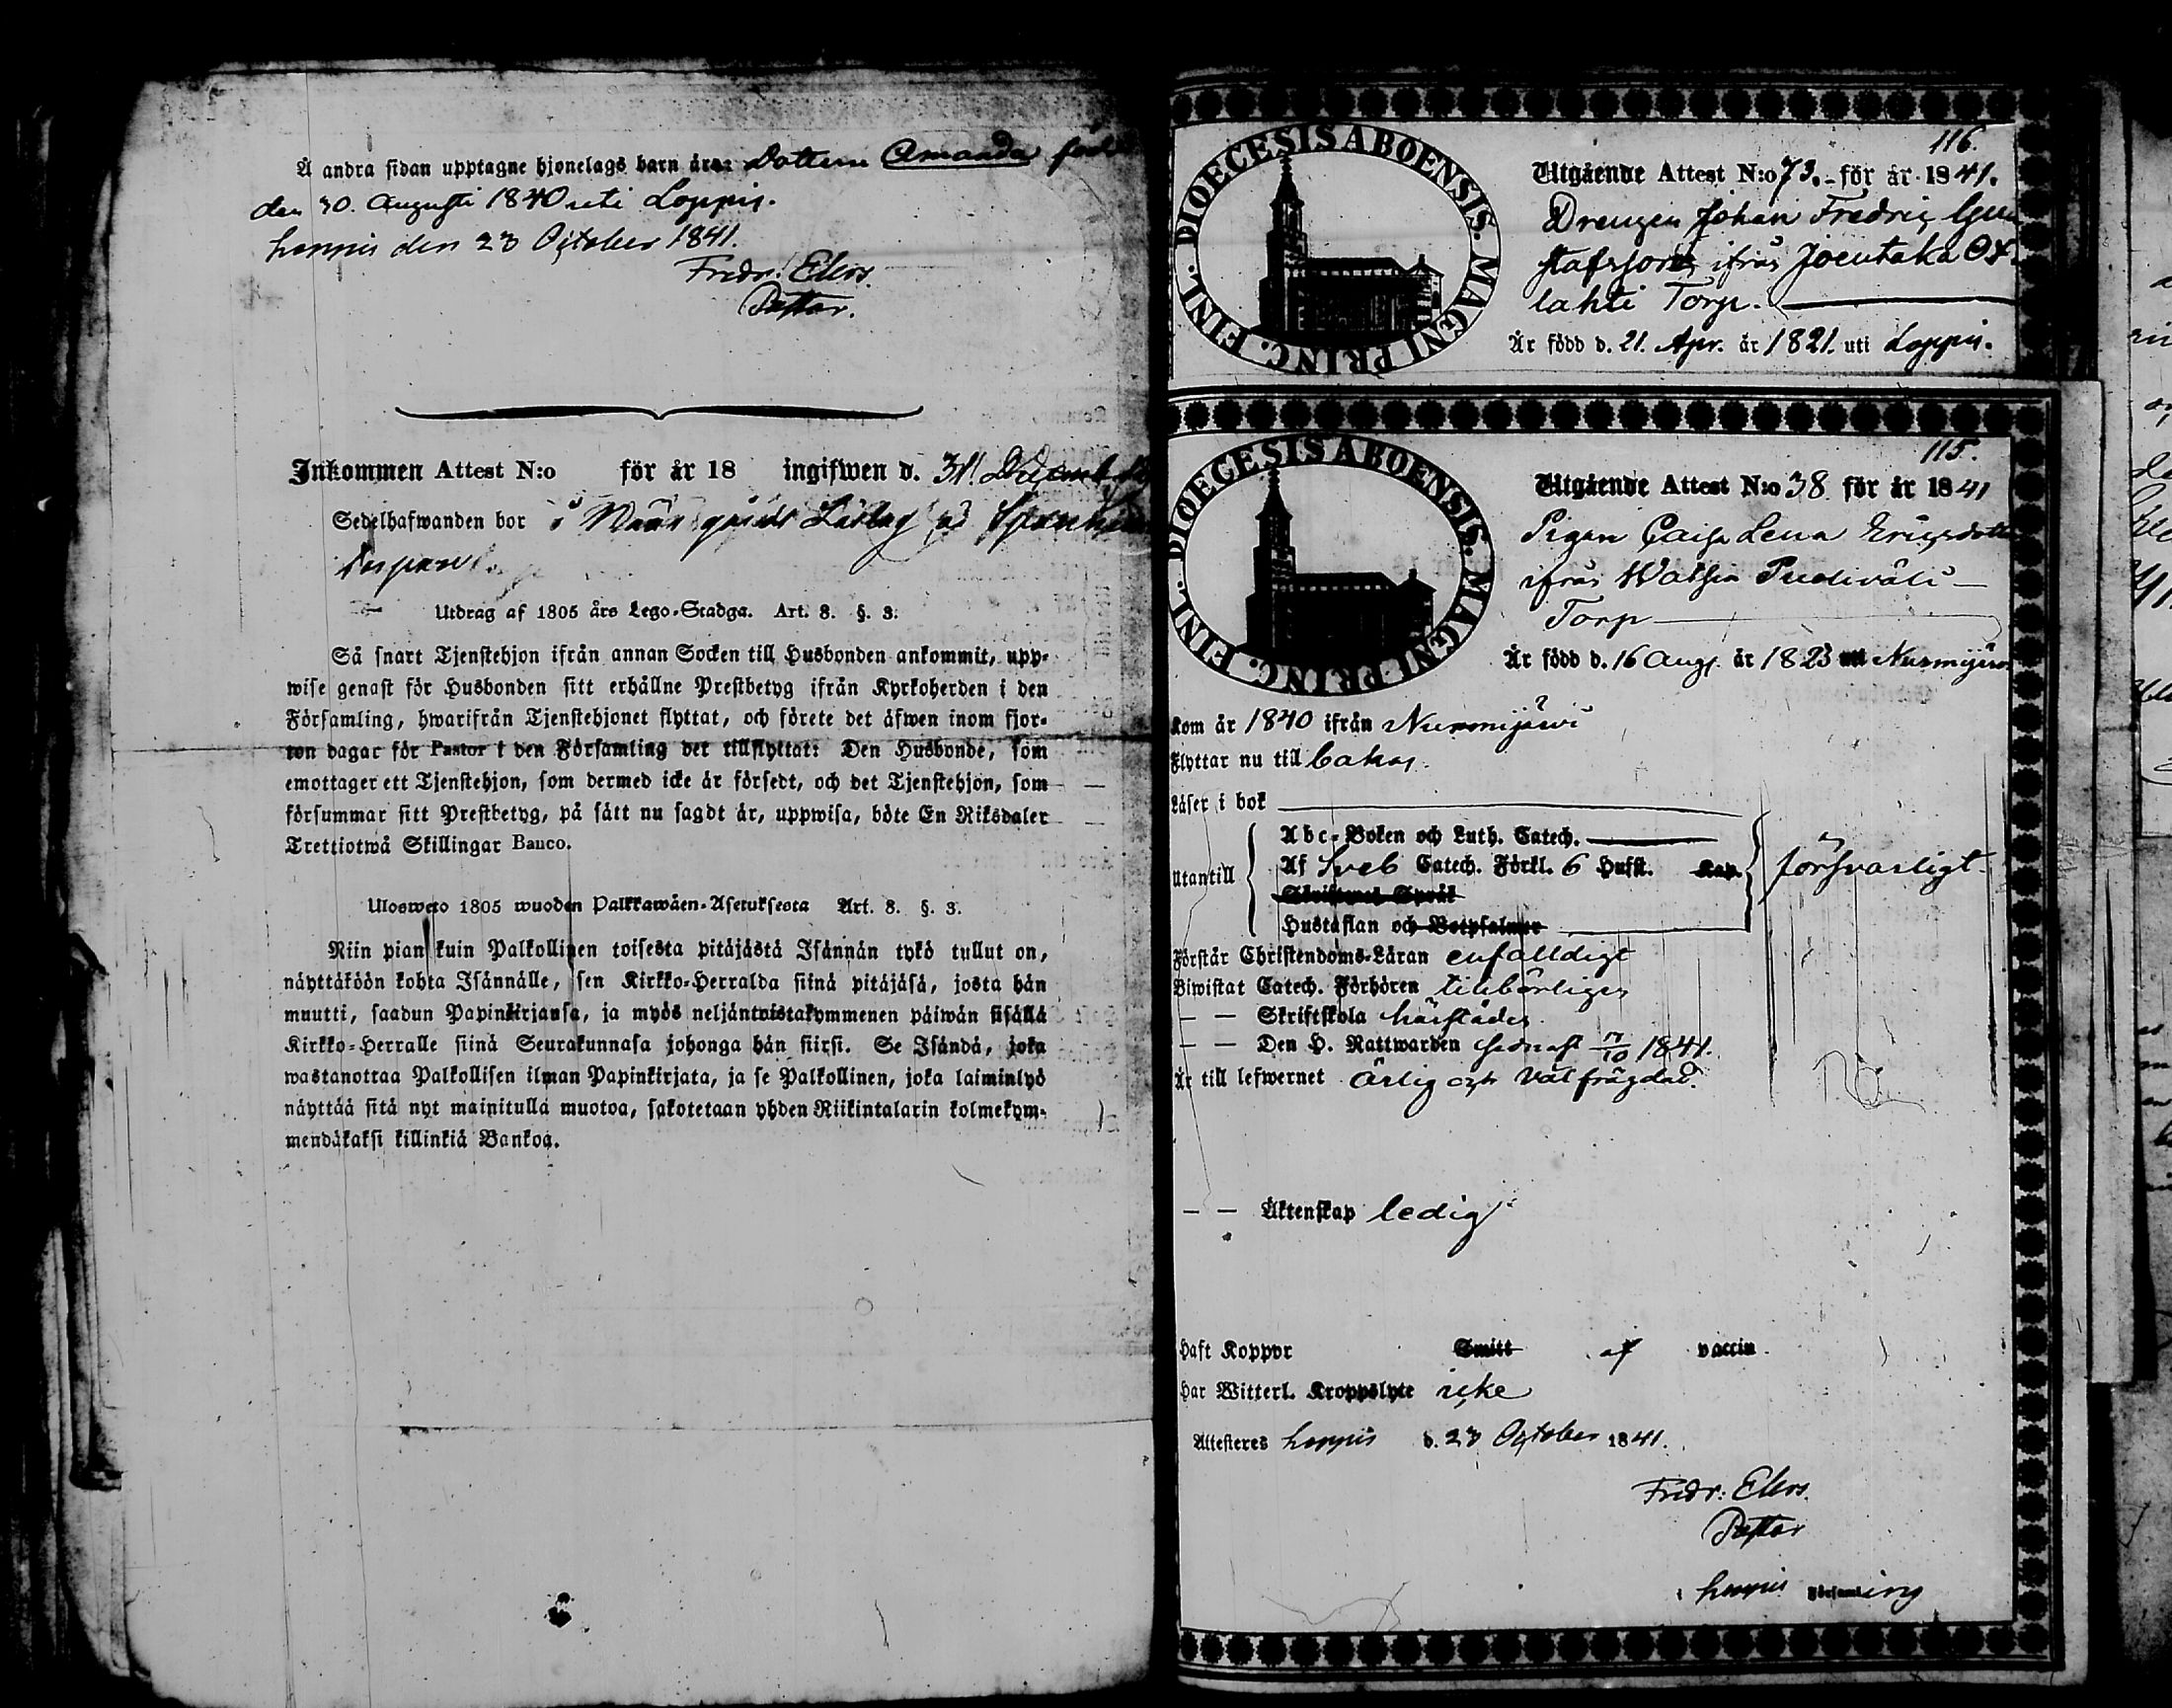 Å andra sidan upptagne hjonelags barn äro: Dottern Amanda född
den 30. Augusti 1840 uti Loppis.
Loppis den 23 October 1841.
Fredr: Elers.
Pastor.
Inkommen Attest N:o för år 18 ingifwen d. 31 December
Sedelhafwanden bor i
Utdrag af 1805 års Lego-Stadga. Art. 8. §. 3.
Så snart Tjenstehjon ifrån annan Socken till Husbonden ankommit, upp-
wise genast för Husbonden sitt erhållne Prestbetyg ifrån Kyrkoherden i den
Församling, hwarifrån Tjenstehjonet flyttat, och förete det äfwen inom fjor-
ton dagar för Pastor i den Församling det tillflyttat: Den Husbonde, som
emottager ett Tjenstehjon, som dermed icke är försedt, och det Tjenstehjon, som
försummar sitt Prestbetyg, på sätt nu sagdt är, uppwisa, böte En Riksdaler
Trettiotwå Skillingar Banco.
Ulosweto 1805 wuoden Palkkawäen-Asetuksesta Art. 8. §. 3.
Niin pian kuin Palkollinen toisesta pitäjästä Isännän tykö tullut on,
näyttäköön kohta Isännälle, sen Kirkko-Herralda siinä pitäjäsä, josta hän
muutti, saadun Papinkirjansa, ja myös neljäntoistakymmenen päiwän sisällä
Kirkko-Herralle siinä Seurakunnasa johonga hän siirsi. Se Isändä, joka
wastanottaa Palkollisen ilman Papinkirjata, ja se Palkollinen, joka laiminlyö
näyttää sitä nyt mainitulla muotoa, sakotetaan yhden Riikintalarin kolmekym-
mendäkaksi killinkiä Bankoa.
116.
DIOECESIS ABOENSIS. MAGNI PRINC. FINL.
Utgående Attest N:o 73. för år 1841.
Drengen Johan Fredric Gus
stafsson ifrån Joentaka Ox
lahti Torp.
Är född d. 21. Apr. år 1821. uti Loppis.
115.
DIOECESIS ABOENSIS. MAGNI PRINC. FINL.
Utgående Attest N:o 38 för år 1841
Pigan Caisa Lena Ericsdotter
ifrån Watsia
Torp
Är född d. 16 Aug. år 1823 uti Nurmijärvi
Kom år 1840 ifrån Nurmijärvi
Flyttar nu till
Läser i bok
Abc-Boken och Luth. Catech.
Utantill Af Sveb Catech. Förkl. 6 Hufst. Kap. försvarligt
Skriftenes Språk
Hustaflan och Botpsalmer
Förstår Christendoms-Läran enfalldigt
Biwistat Catech. Förhören tillbörligen
— — Skriftskola härstädes
— — Den H. Nattwarden sednast 17/10 1841.
Är till lefwernet ärlig och välfrägdad.
— — Äktenskap ledig
Haft Koppor Smitt af vaccin
Har Witterl. Kroppslyte icke
Attesteres Loppis d. 23 October 1841.
Fredr: Elers.
Pastor
i Loppis Församling